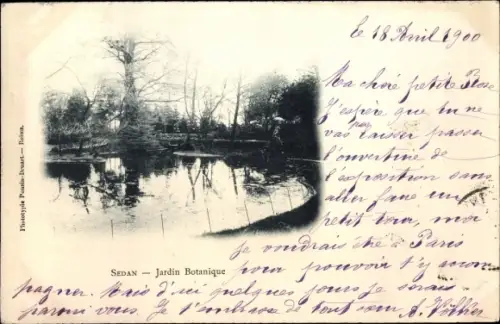 le 18 Avril 1900
Ma chère petite Rose
J'espère que tu ne
vas pas laisser passer
l'ouverture de
l'exposition sans
aller faire un
petit tour, moi
je voudrais être à Paris
pour pouvoir t'y accom
pagner. Mais d'ici quelques jours je serais
parmi vous. Je t'embrasse de tout cœur
Sedan — Jardin Botanique
Phototypie